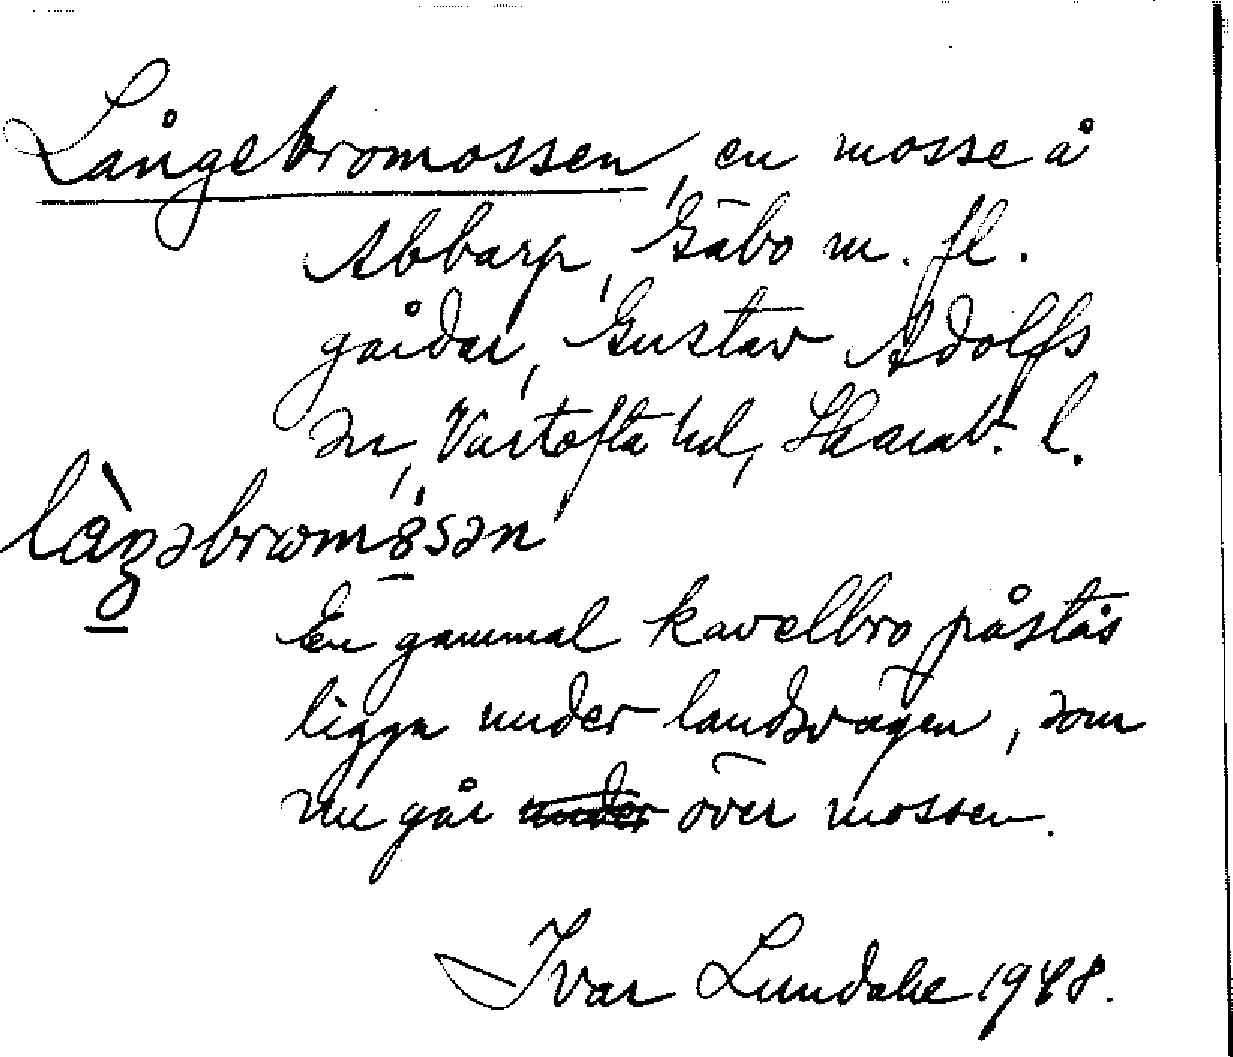 Långebromossen, en mosse å
Abbarp, Gäbo m. fl.
gårdar, Gustav Adolfs
sn, Vartofta hd, Skarab. l.
làŋəbrωmȯsən
En gammal kavelbro påstås
ligga under landsvägen, som
nu går under över mossen.
Ivar Lundahl 1948.